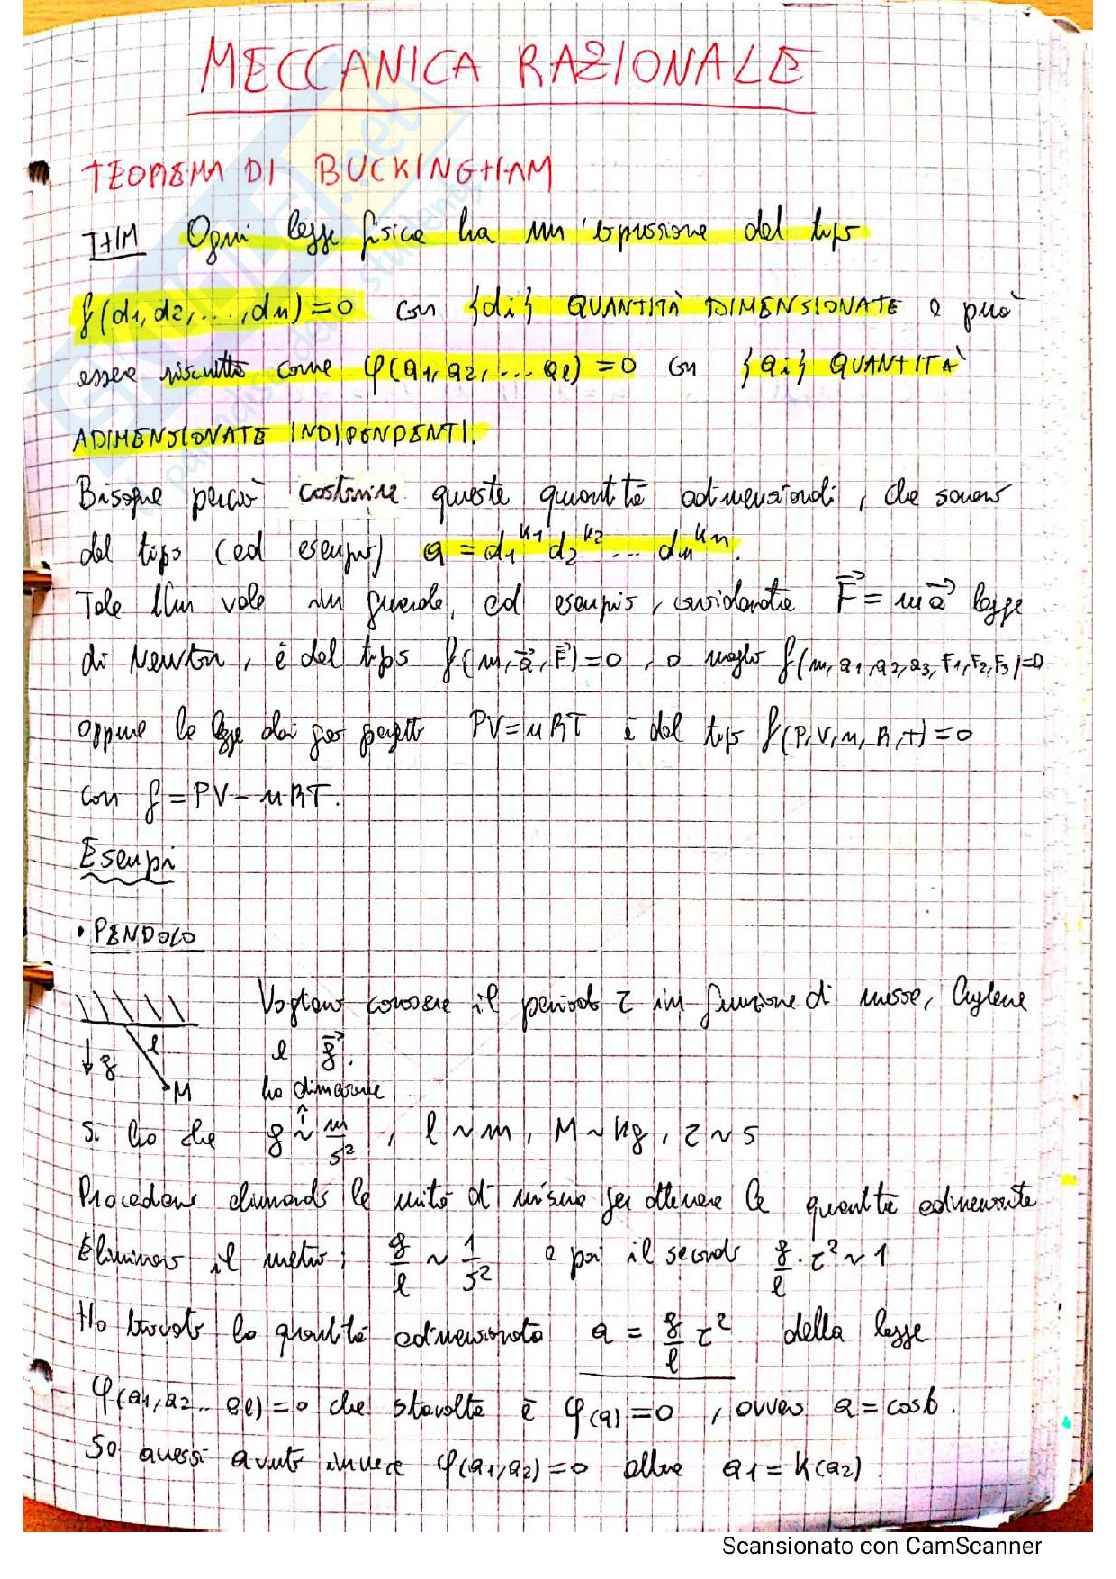 MECCANICA RAZIONALE
TEOREMA DI BUCKINGHAM
THM Ogni legge fisica ha un'espressione del tipo
f(d1, d2, ..., dn) = 0 con {di} QUANTITÀ DIMENSIONATE e può
essere riscritta come φ(a1, a2, ... al) = 0 con {ai} QUANTITÀ
ADIMENSIONATE INDIPENDENTI.
Bisogna perciò costruire queste quantità adimensionali, che saranno
del tipo (ad esempio) a = d1^k1 d2^k2 ... dn^kn.
Tale thm vale in generale, ad esempio, considerate F⃗ = m a⃗ legge
di Newton, è del tipo f(m, a⃗, F⃗) = 0, o meglio f(m, a1, a2, a3, F1, F2, F3) = 0
oppure la legge dei gas perfetti PV = nRT è del tipo f(P, V, n, R, T) = 0
con f = PV - nRT.
Esempi
• PENDOLO
Vogliamo conoscere il periodo τ in funzione di masse, lunghezza
e g⃗.
l
g
M
ha dimensione
Si ha che g ~ m/s², l ~ m, M ~ kg, τ ~ s
Procediamo eliminando le unità di misura per ottenere le quantità adimensionate
Eliminiamo il metro: g/l ~ 1/s² e poi il secondo g/l · τ² ~ 1
Ho trovato la quantità adimensionata a = g/l τ² della legge
φ(a1, a2 .. al) = 0 che stavolta è φ(a) = 0, ovvero a = cost.
Se avessi avuto invece φ(a1, a2) = 0 allora a1 = k(a2)
Scansionato con CamScanner